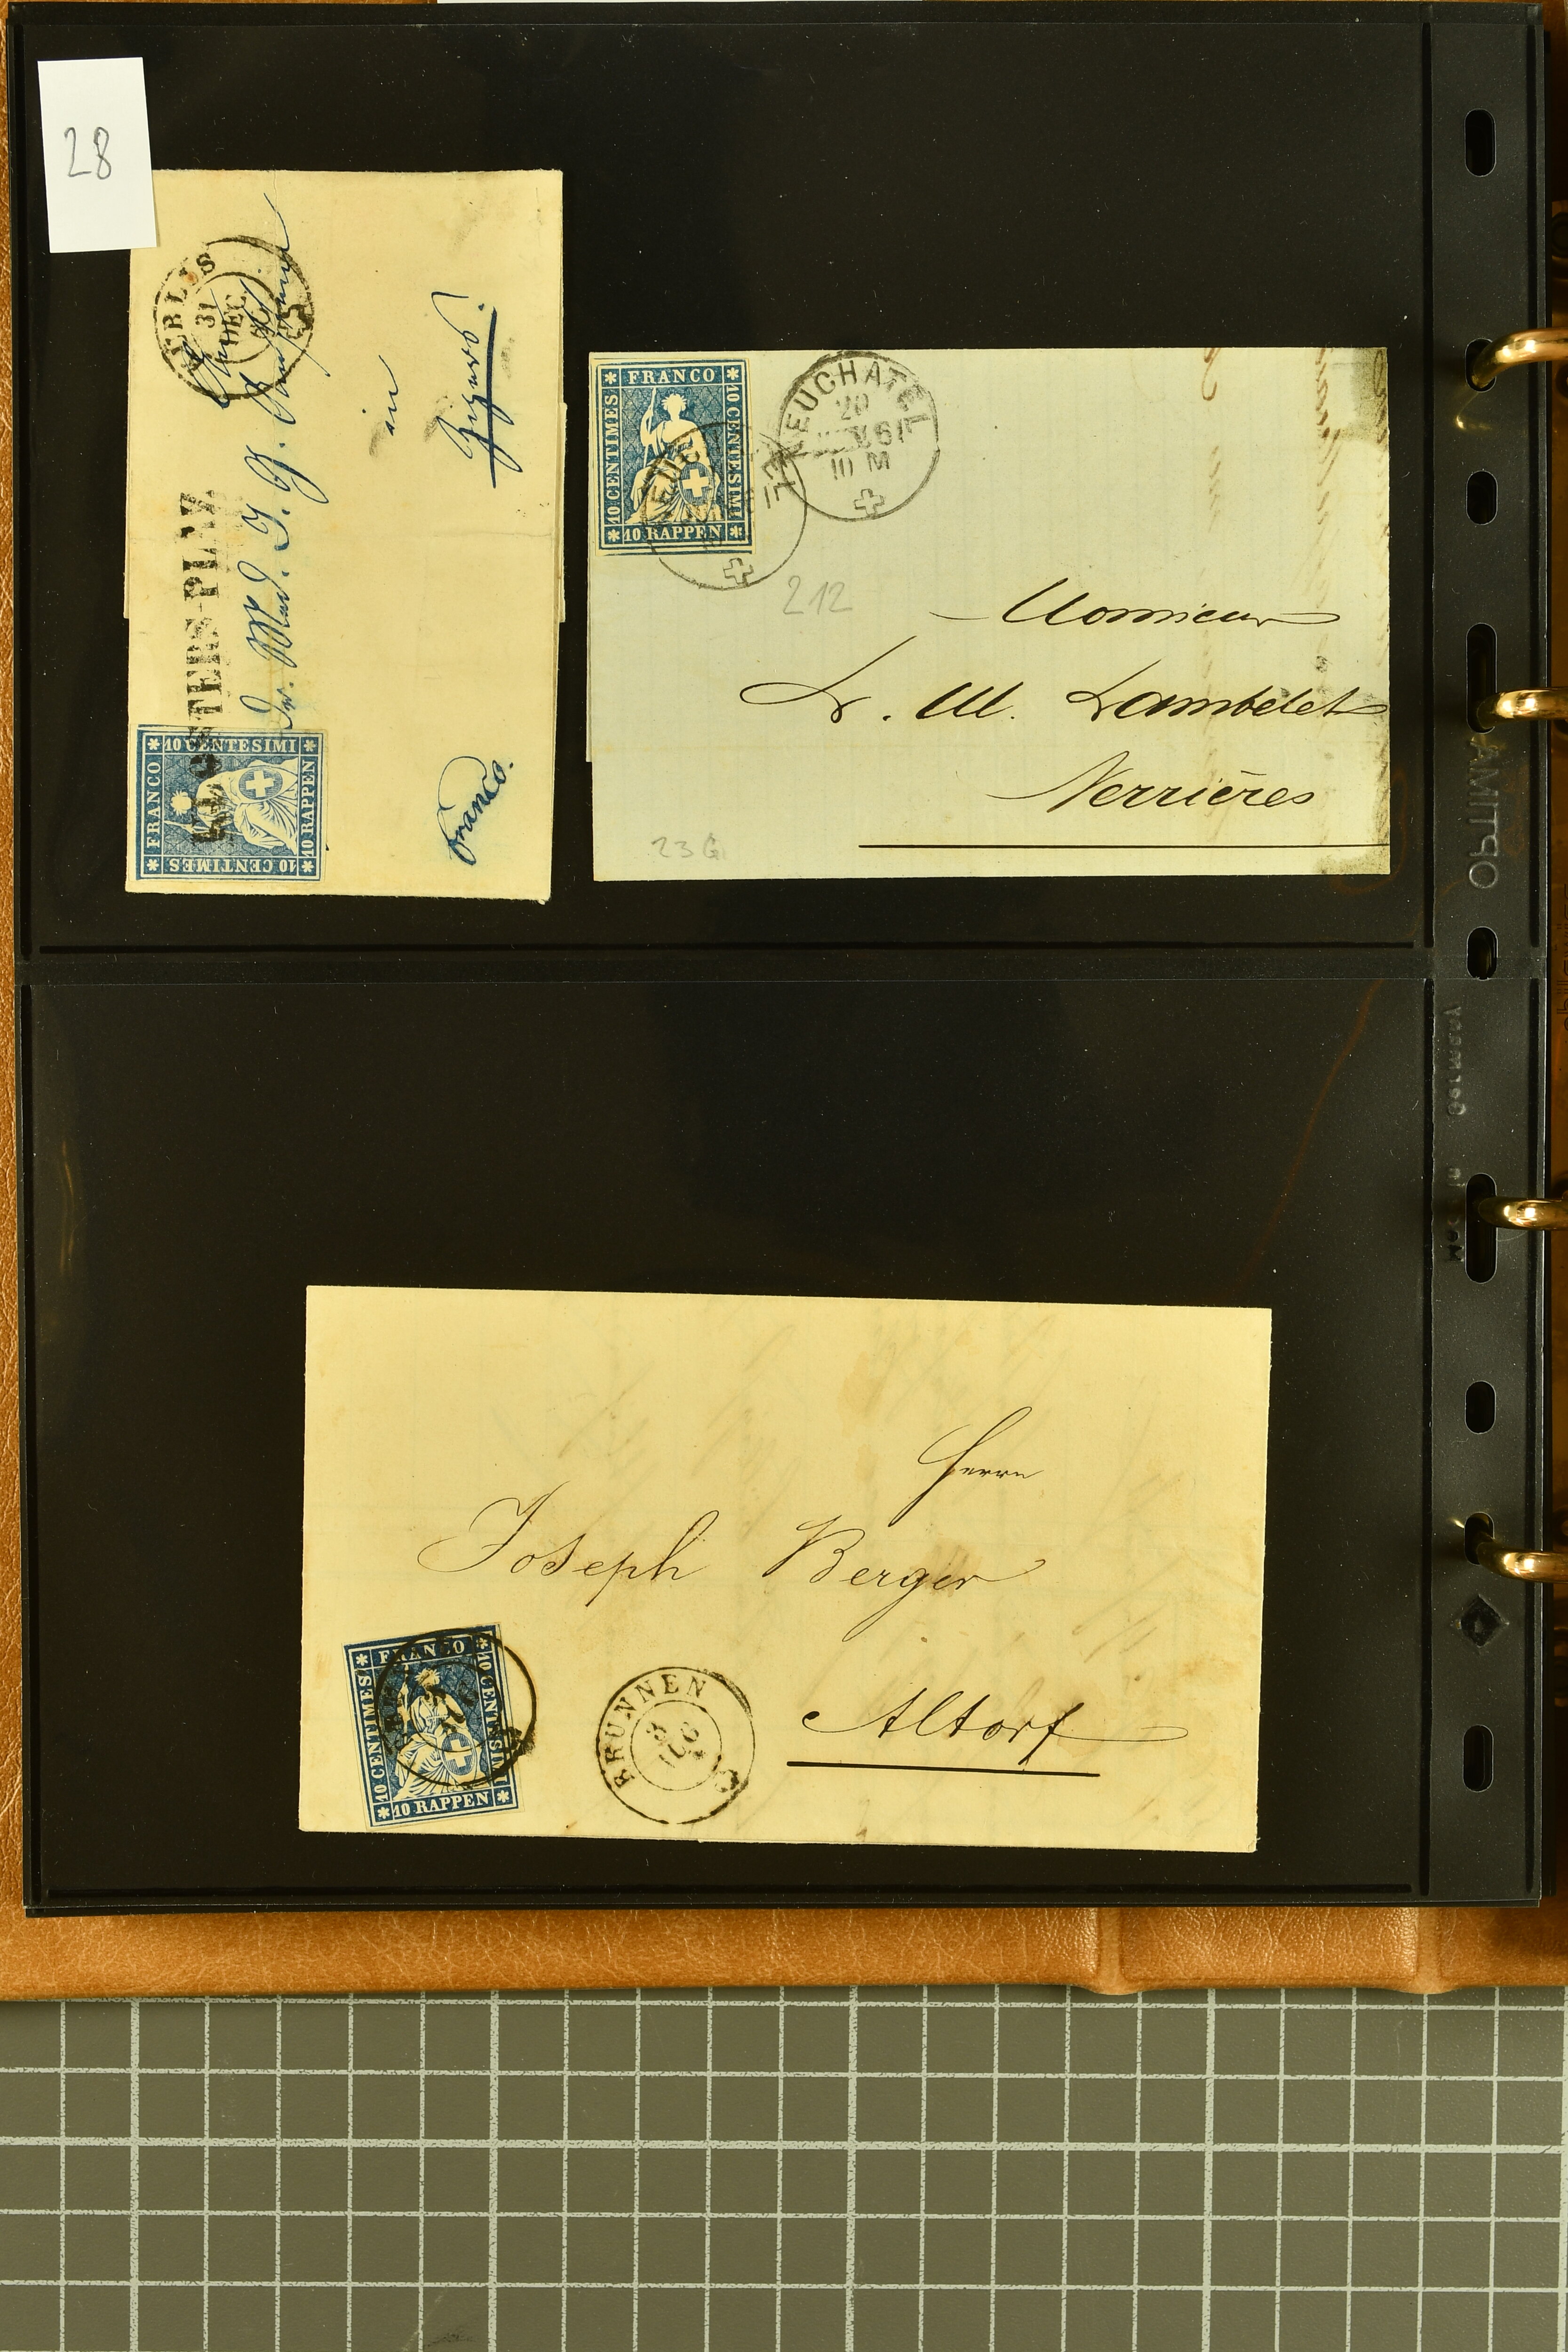 28
KLOSTERS-PLAZ.
31
DEC
in
Zizers!
franco.
FRANCO
10 CENTESIMI
10 RAPPEN
10 CENTIMES
NEUCHATEL
20
61
10 M
FRANCO
10 CENTIMES
10 CENTESIMI
10 RAPPEN
212
Monsieur
L. Ul. Lambelet
Verrières
23G
Herrn
Joseph Berger
Altorf
BRUNNEN
FRANCO
10 CENTIMES
10 CENTESIMI
10 RAPPEN
OPTIMA
Made in Germany